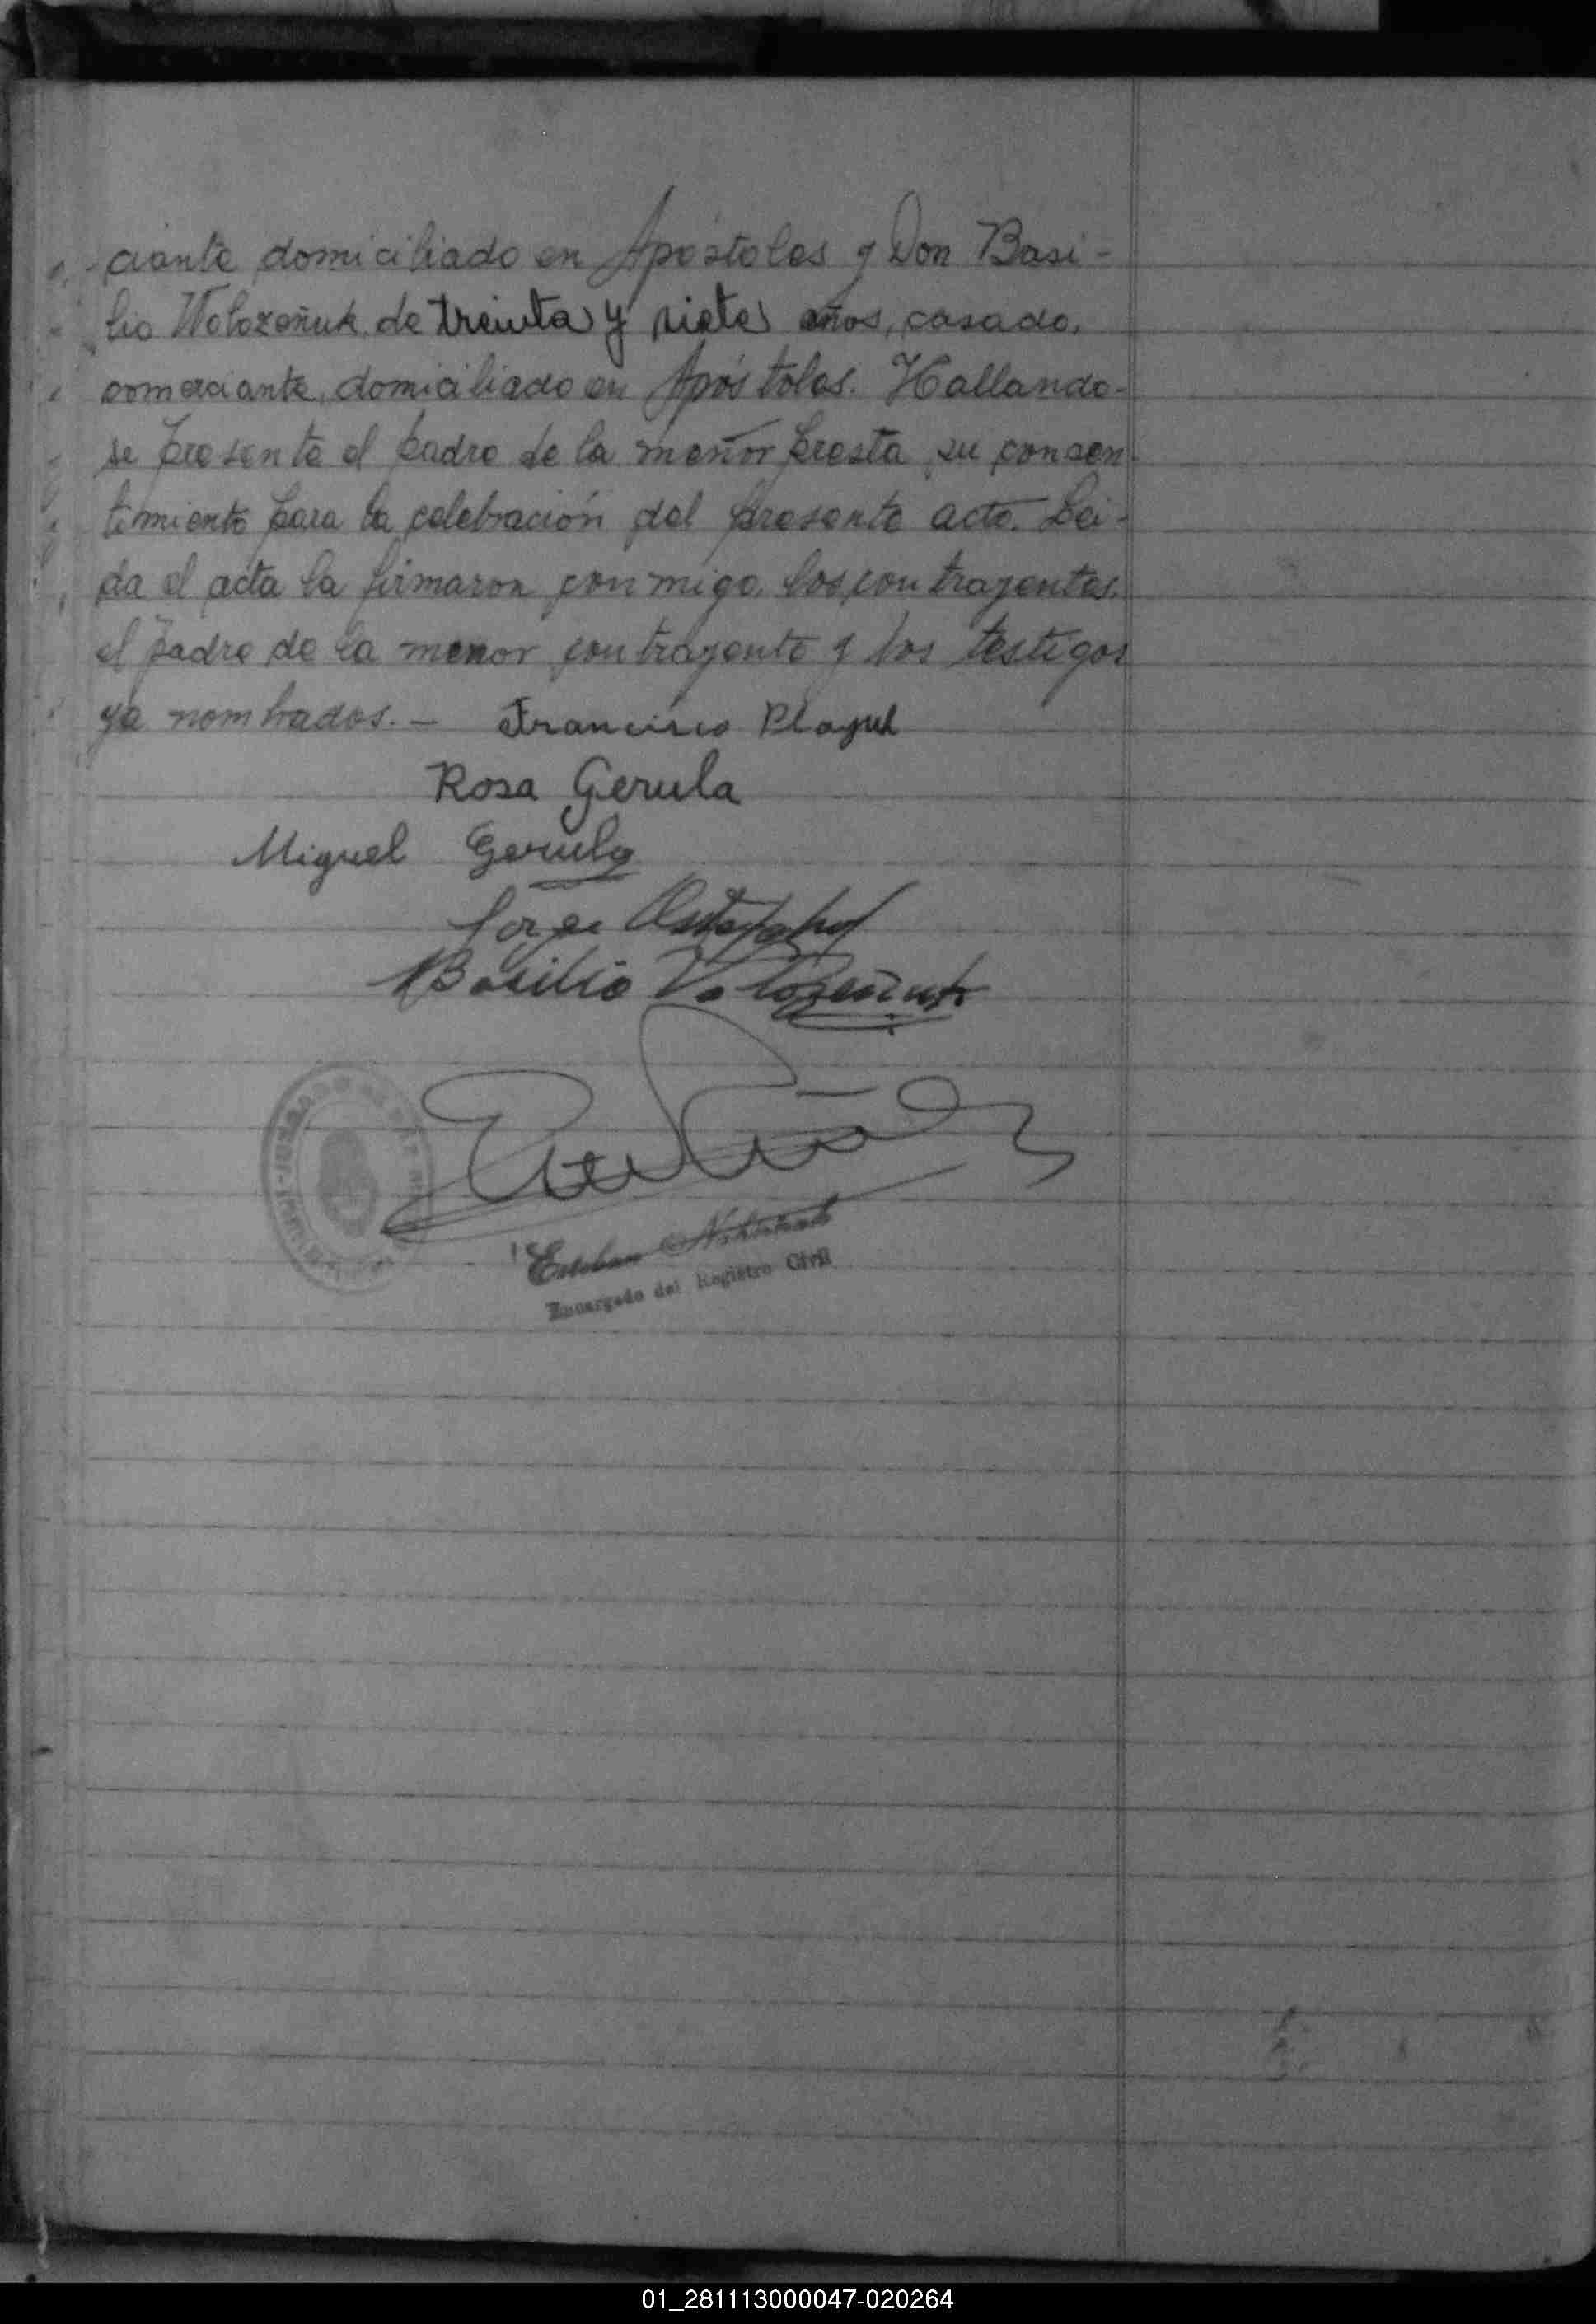 -ciante domiciliado en Apóstoles y Don Basi-
lio Wolozeñuk, de treinta y siete años, casado,
comerciante, domiciliado en Apóstoles. Hallando-
se presente el padre de la menor presta su consen-
timiento para la celebración del presente acto. Lei-
da el acta la firmaron conmigo, los contrayentes,
el padre de la menor contrayente y los testigos
ya nombrados.- Francisco
Rosa Gerula
Miguel Gerula
Jorge
Basilio Volozeñuk
Esteban
Encargado del Registro Civil
01_281113000047-020264